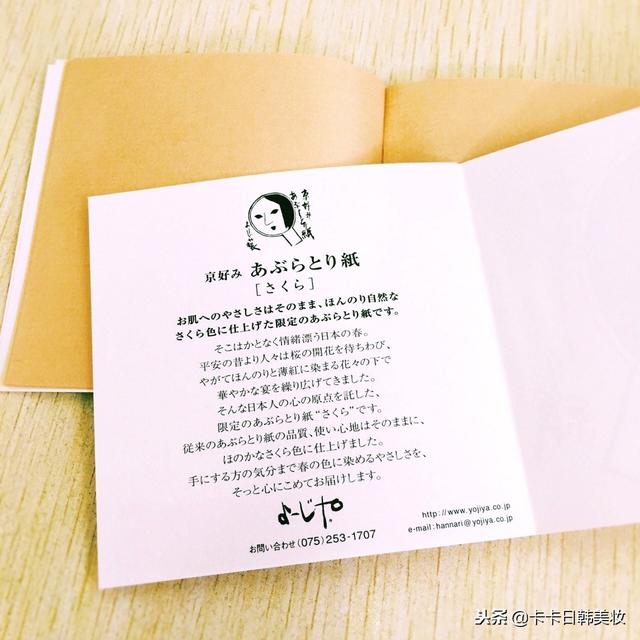 京好み あぶらとり紙
[さくら]
お肌へのやさしさはそのまま、ほんのり自然な
さくら色に仕上げた限定のあぶらとり紙です。
そこはかとなく情緒漂う日本の春。
平安の昔より人々は桜の開花を待ちわび、
やがてほんのりと薄紅に染まる花々の下で
華やかな宴を繰り広げてきました。
そんな日本人の心の原点を託した、
限定のあぶらとり紙“さくら”です。
従来のあぶらとり紙の品質、使い心地はそのままに、
ほのかなさくら色に仕上げました。
手にする方の気分まで春の色に染めるやさしさを、
そっと心にこめてお届けします。
よーじや
お問い合わせ(075)253-1707
http://www.yojiya.co.jp
e-mail:hannari@yojiya.co.jp
头条 @卡卡日韩美妆